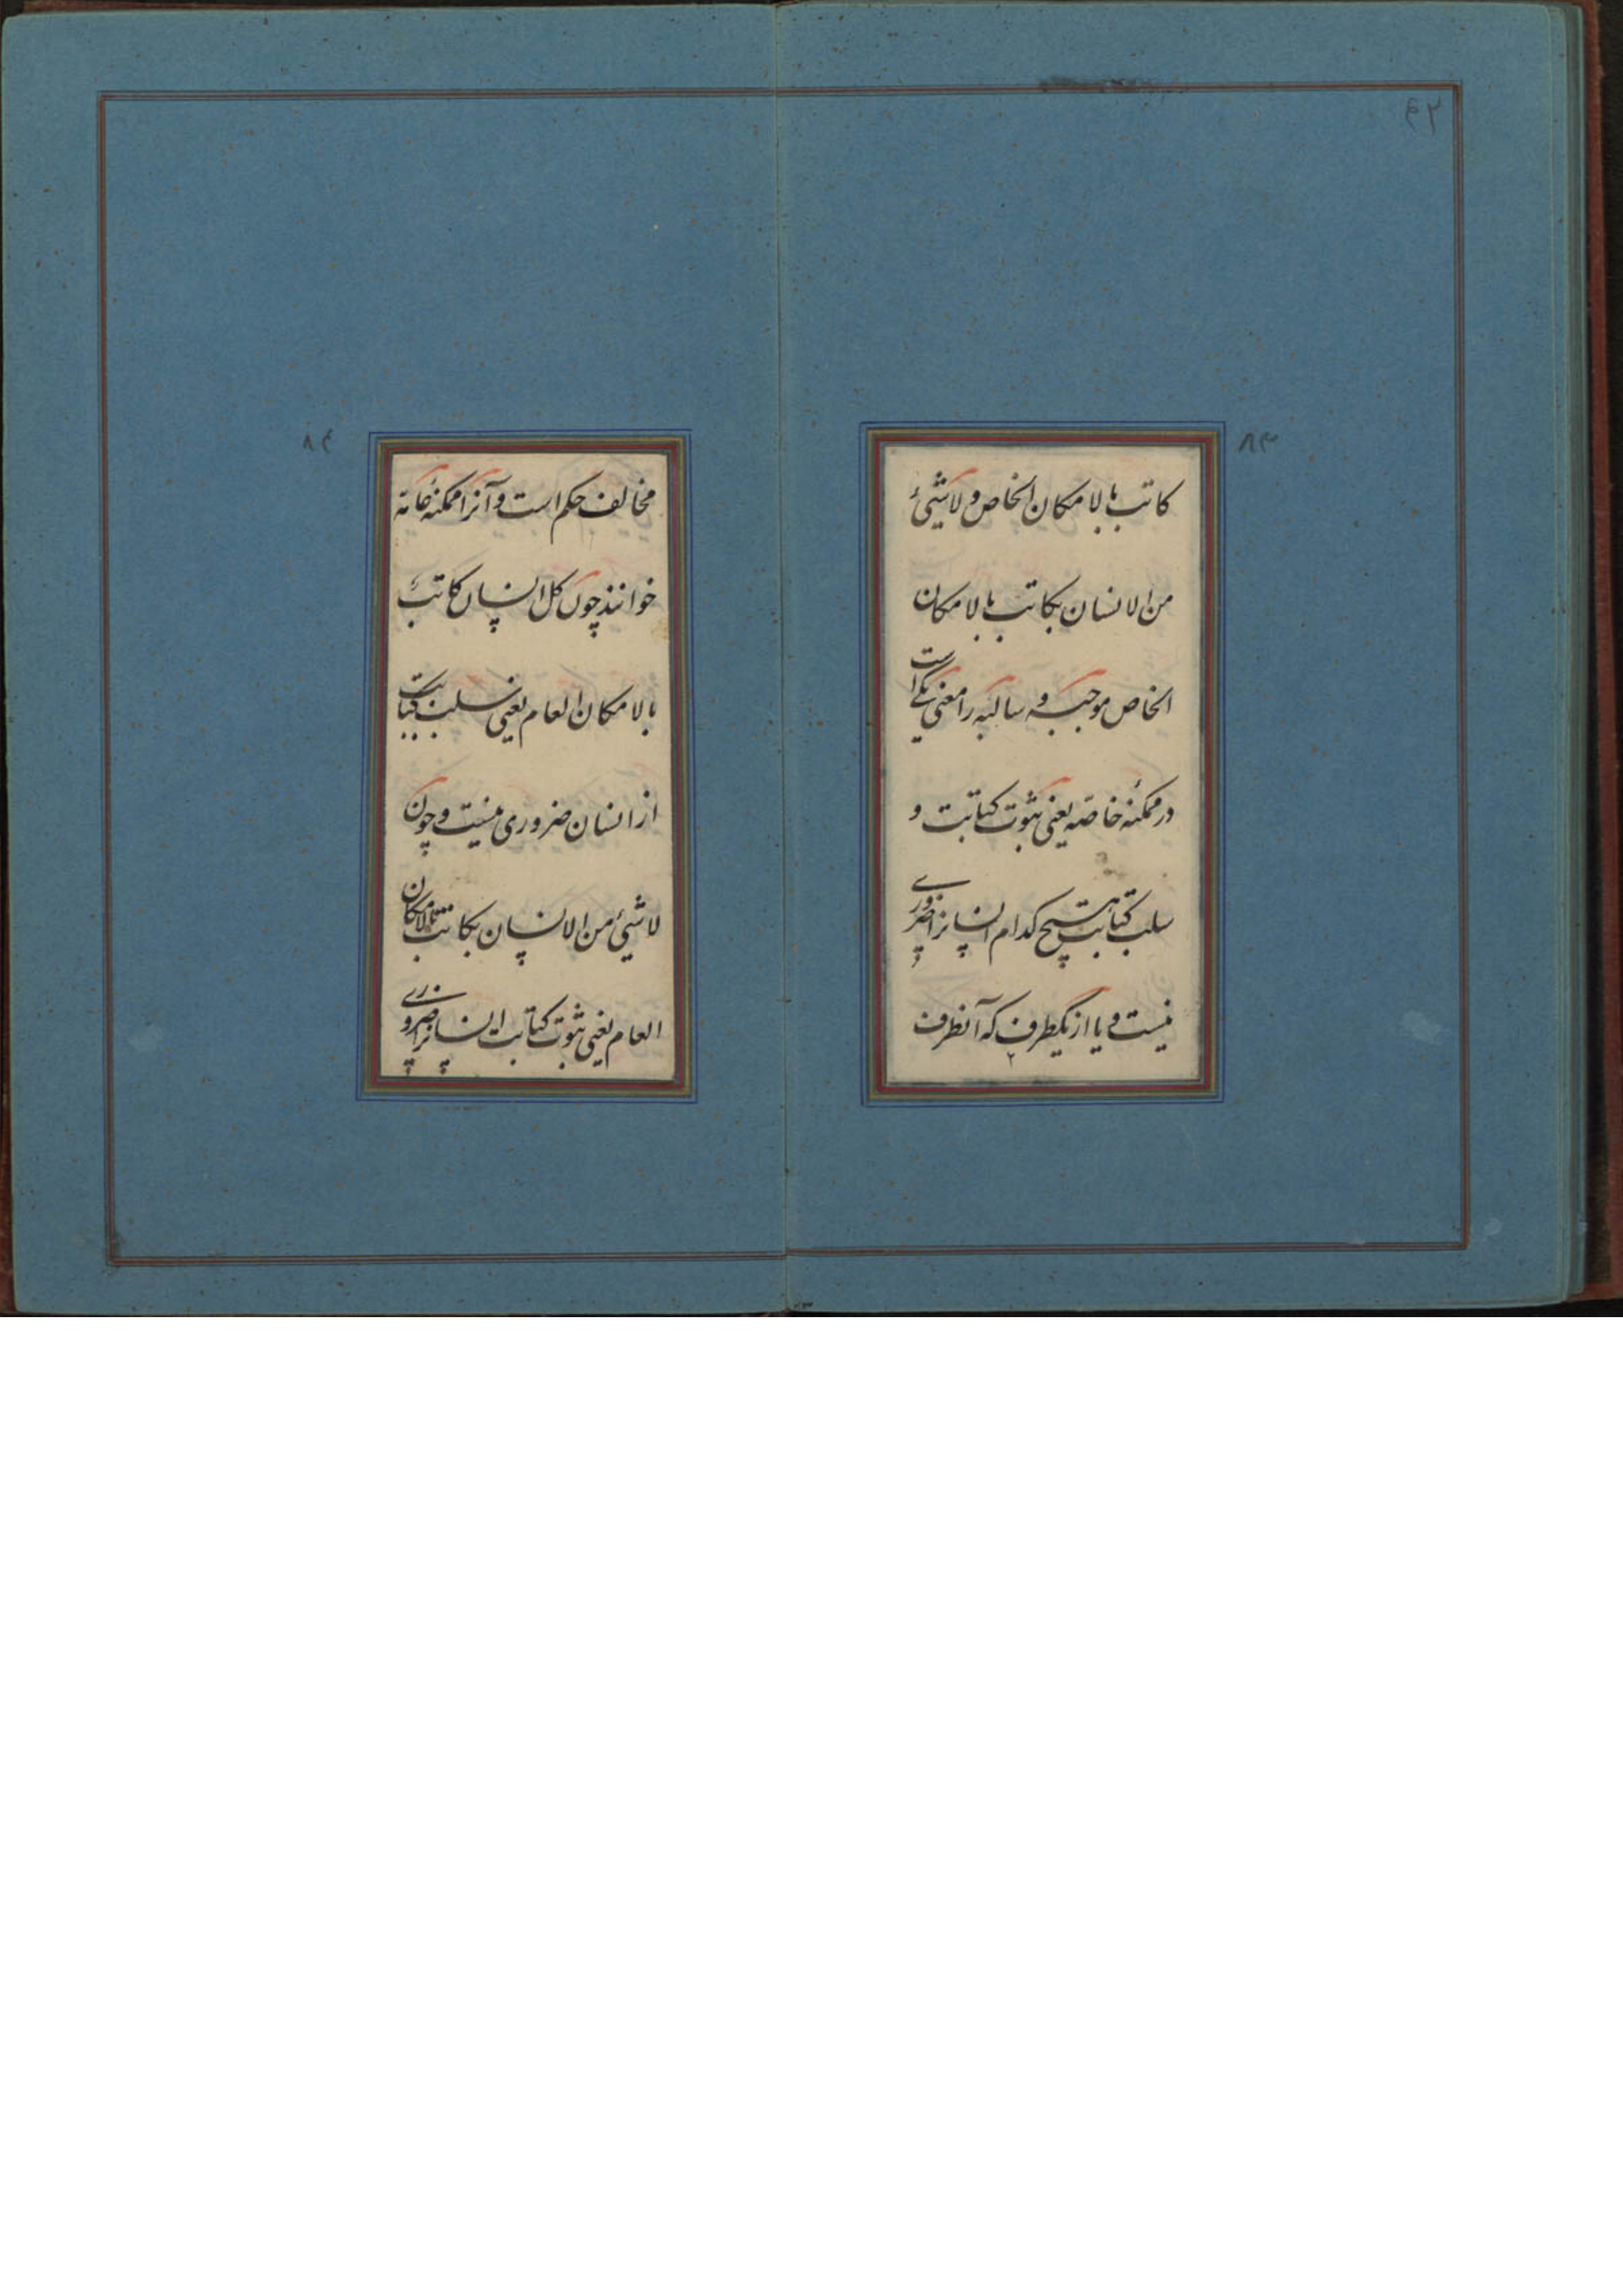 ۴۲
۸۳
کاتب بالامکان الخاص و لاشیئ
من الانسان بکاتب بالامکان
الخاص موجبه و سالبه را معنی یکی است
در ممکنهٔ خاصّه یعنی ثبوت کتابت و
سلب کتابت هیچ کدام انسانرا ضروری
نیست و یا از یکطرف که آنطرف
۸۴
مخالف حکم است و آنرا ممکنهٔ عامّه
خوانند چون کل انسان کاتبٌ
بالامکان العام یعنی سلب کتابت
از انسان ضروری نیست و چون
لاشیئ من الانسان بکاتب بالامکان
العام یعنی ثبوت کتابت انسانرا ضروری